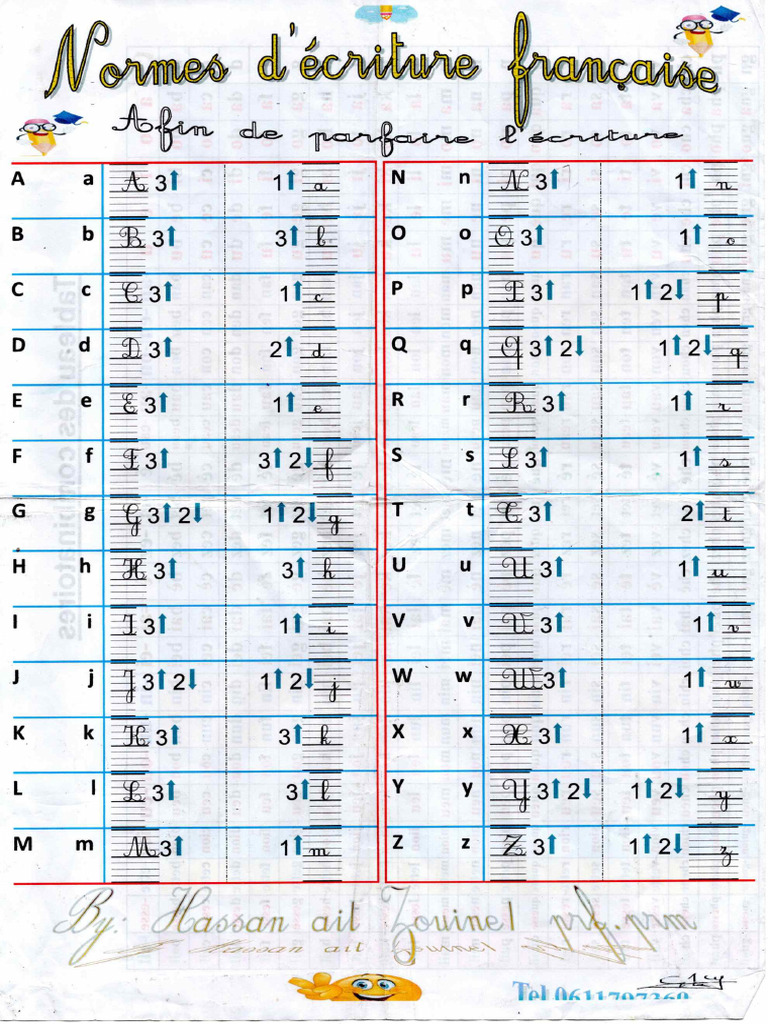 Normes d'écriture française
Afin de parfaire l'écriture
A a A 3⬆ 1⬆ a
B b B 3⬆ 3⬆ b
C c C 3⬆ 1⬆ c
D d D 3⬆ 2⬆ d
E e E 3⬆ 1⬆ e
F f F 3⬆ 3⬆ 2⬇ f
G g G 3⬆ 2⬇ 1⬆ 2⬇ g
H h H 3⬆ 3⬆ h
I i I 3⬆ 1⬆ i
J j J 3⬆ 2⬇ 1⬆ 2⬇ j
K k K 3⬆ 3⬆ k
L l L 3⬆ 3⬆ l
M m M 3⬆ 1⬆ m
N n N 3⬆ 1⬆ n
O o O 3⬆ 1⬆ o
P p P 3⬆ 1⬆ 2⬇ p
Q q Q 3⬆ 2⬇ 1⬆ 2⬇ q
R r R 3⬆ 1⬆ r
S s S 3⬆ 1⬆ s
T t T 3⬆ 2⬆ t
U u U 3⬆ 1⬆ u
V v V 3⬆ 1⬆ v
W w W 3⬆ 1⬆ w
X x X 3⬆ 1⬆ x
Y y Y 3⬆ 2⬇ 1⬆ 2⬇ y
Z z Z 3⬆ 1⬆ 2⬇ z
Tableau des combinatoires
By: Hassan ait Zouinel prf.prm
Hassan ait Zouinel
Tel